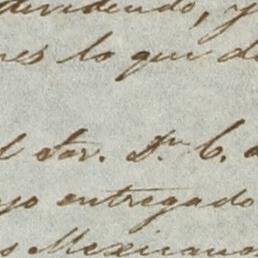 dividendo, y
nes lo que d
l Sor. Dn. C.
yo entregado
s Mexicano